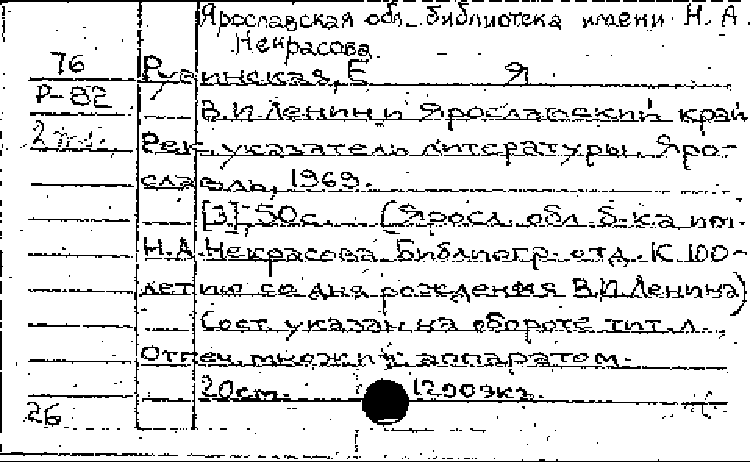 Ярославская обл. библиотека имени Н. А.
Некрасова.
76
Р-82
Рувинская, Е Я
В. И Ленин и Ярославский край
Рек. указатель литературы. Яро-
славль, 1969.
[3], 50с. (Яросл. обл. б-ка им.
Н. А Некрасова Библиогр. отд. К 100-
летию со дня рождения В. И. Ленина)
Сост. указан на обороте тит. л.
Отпеч. множит. аппаратом.
20см. 1200экз.
26